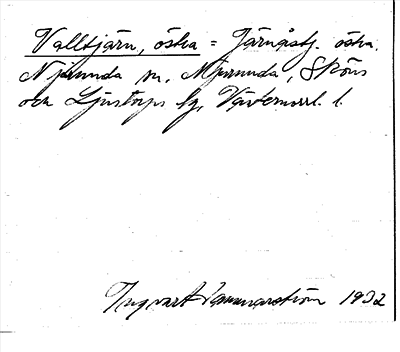 Valltjärn, östra = Järnåstj. östra.
Njurunda sn. Njurunda, Sköns
och Ljustorps tg, Västernorrl. l.
Ingvart Hammarström 1932